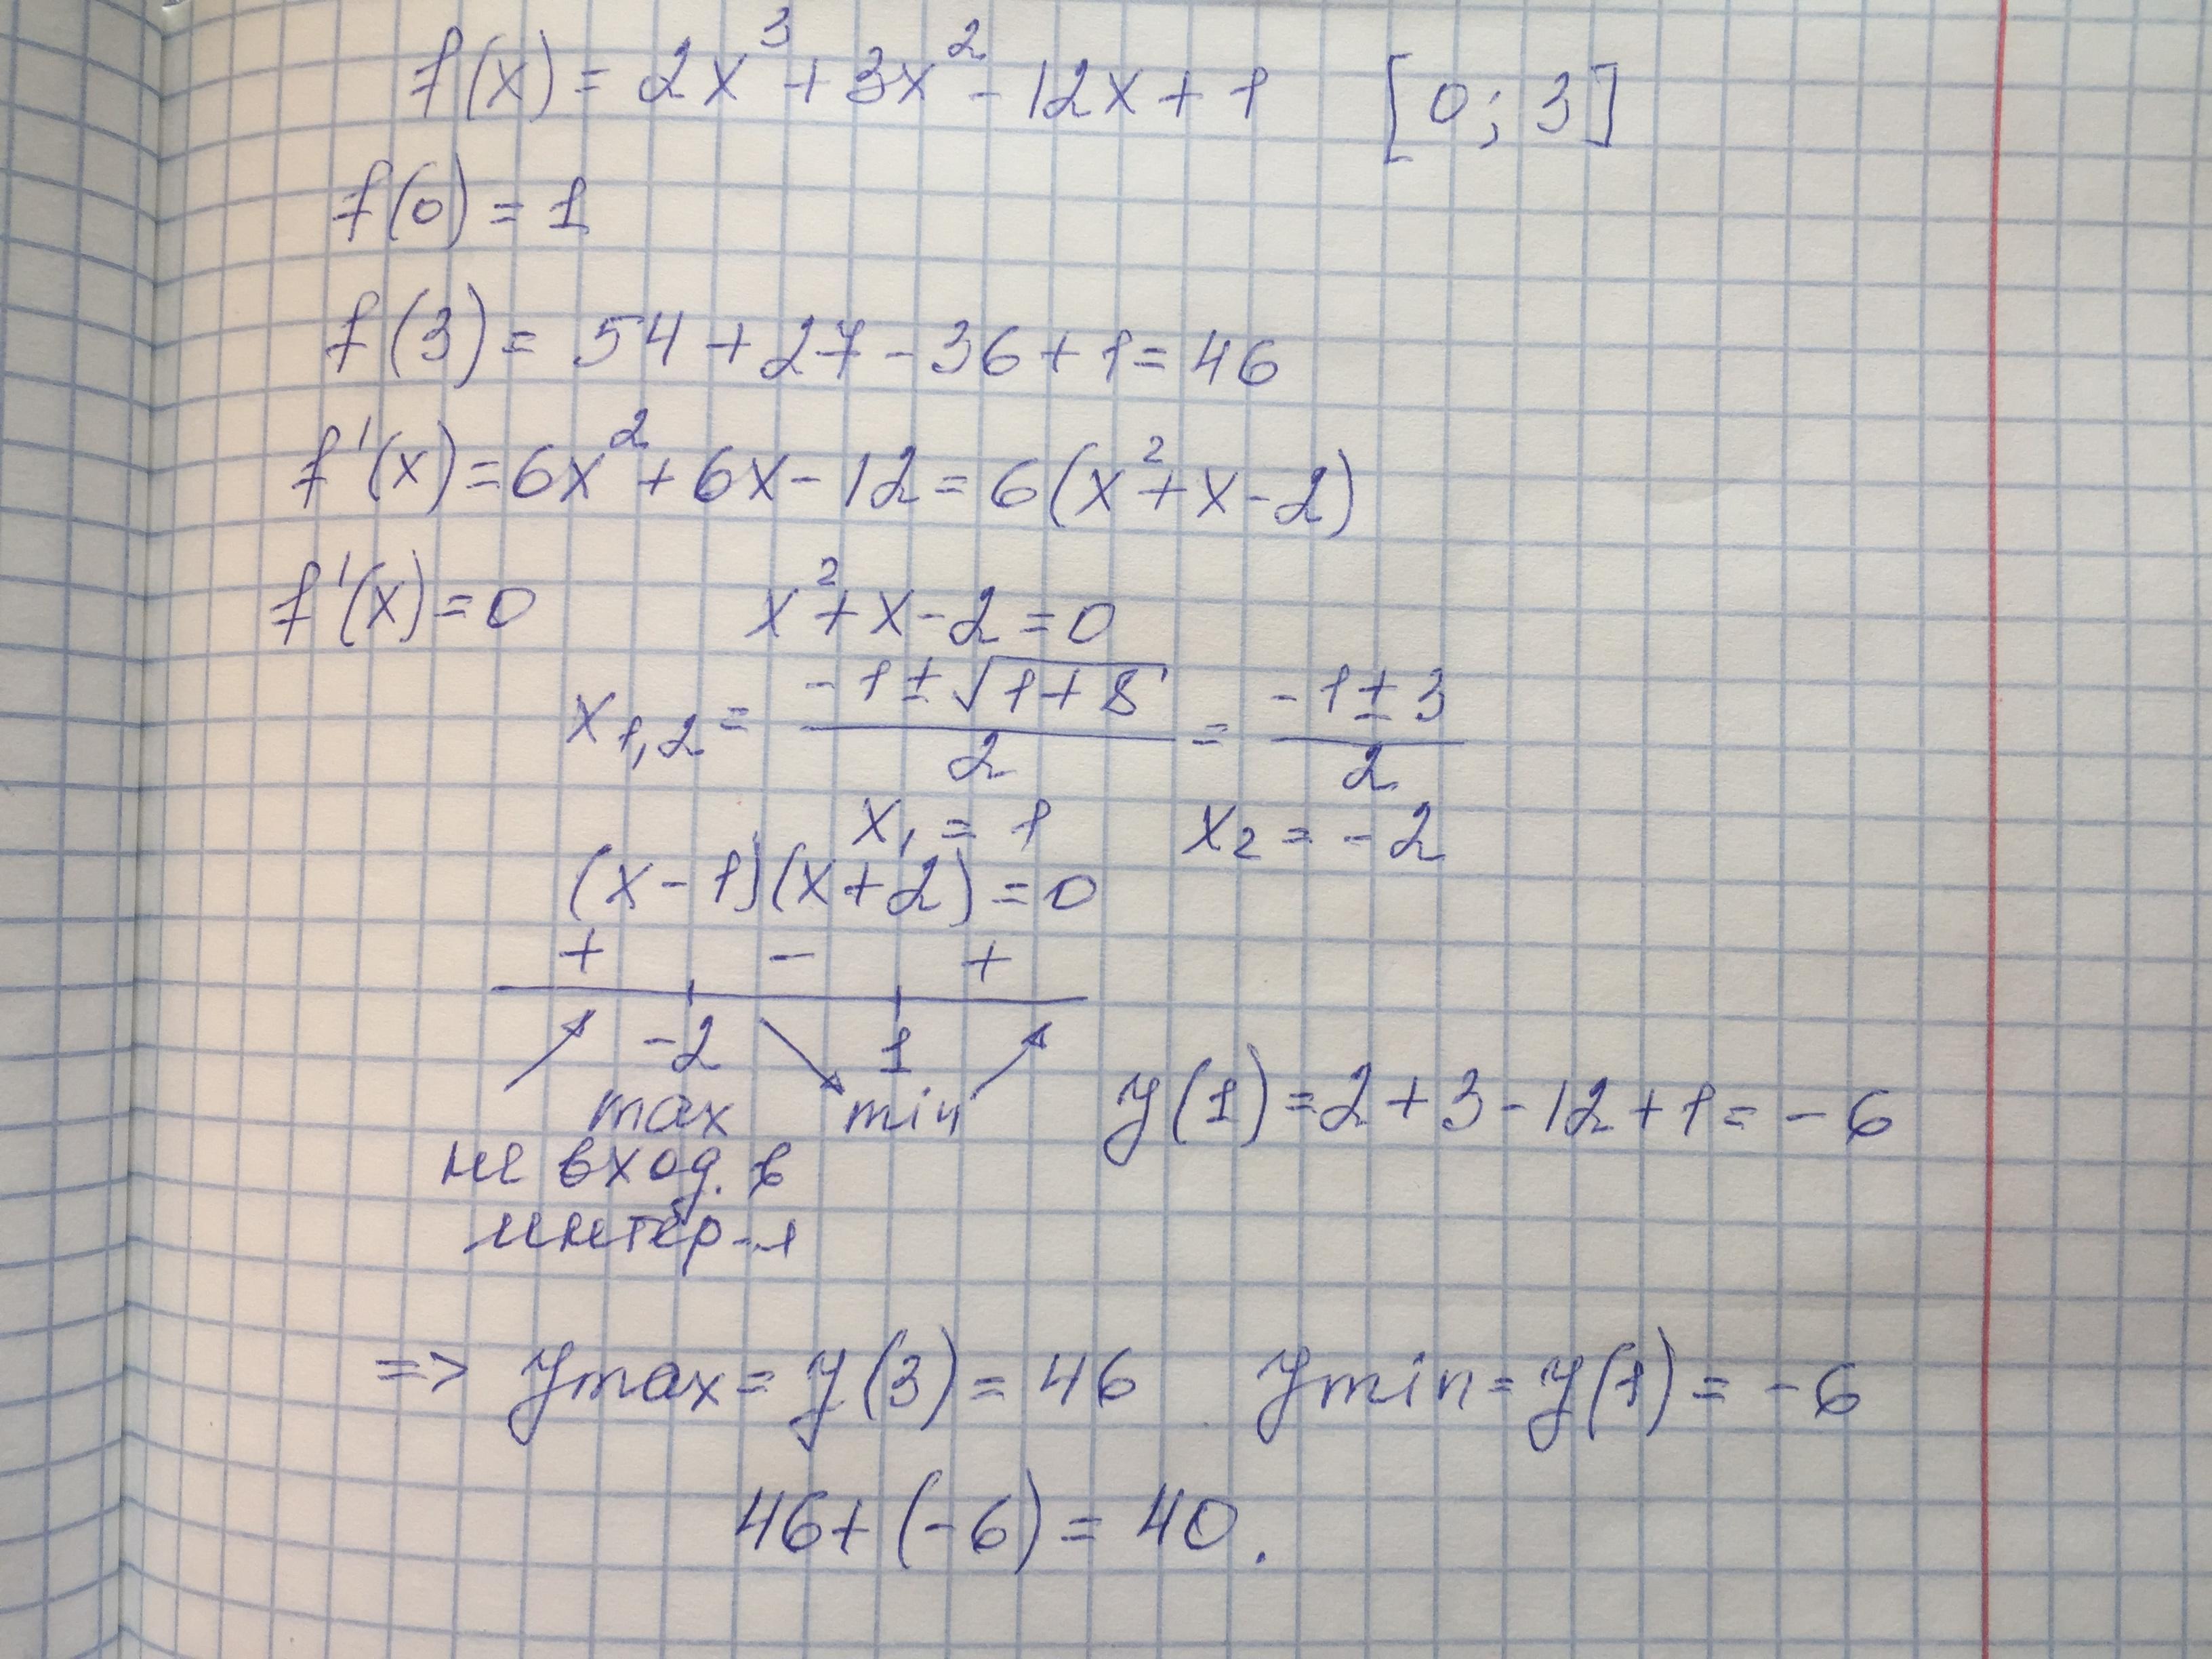 f(x) = 2x³ + 3x² - 12x + 1 [0; 3]
f(0) = 1
f(3) = 54 + 27 - 36 + 1 = 46
f'(x) = 6x² + 6x - 12 = 6(x² + x - 2)
f'(x) = 0 x² + x - 2 = 0
x₁,₂ = (-1 ± √(1 + 8))/2 = (-1 ± 3)/2
x₁ = 1 x₂ = -2
(x - 1)(x + 2) = 0
+ - +
-2 1
max min y(1) = 2 + 3 - 12 + 1 = -6
не вход. в
интер-л
=> ymax = y(3) = 46 ymin = y(1) = -6
46 + (-6) = 40.